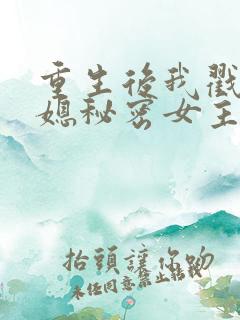 重生後我戳
媳秘密女主
抬頭讓你吻
未经同意禁止转载